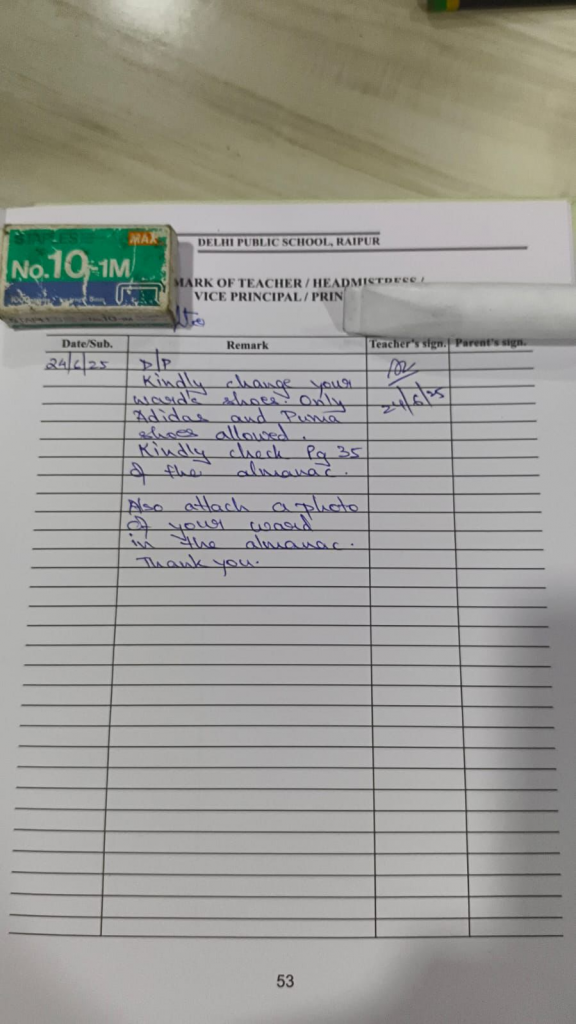 STAPLES MAX
No.10-1M
DELHI PUBLIC SCHOOL, RAIPUR
MARK OF TEACHER / HEADMISTRESS /
VICE PRINCIPAL / PRIN
Date/Sub. Remark Teacher's sign. Parent's sign.
24/6/25 D/P
Kindly change your
ward's shoes. Only
Adidas and Puma 24/6/25
shoes allowed.
Kindly check Pg 35
of the almanac.
Also attach a photo
of your ward
in the almanac.
Thank you.
53